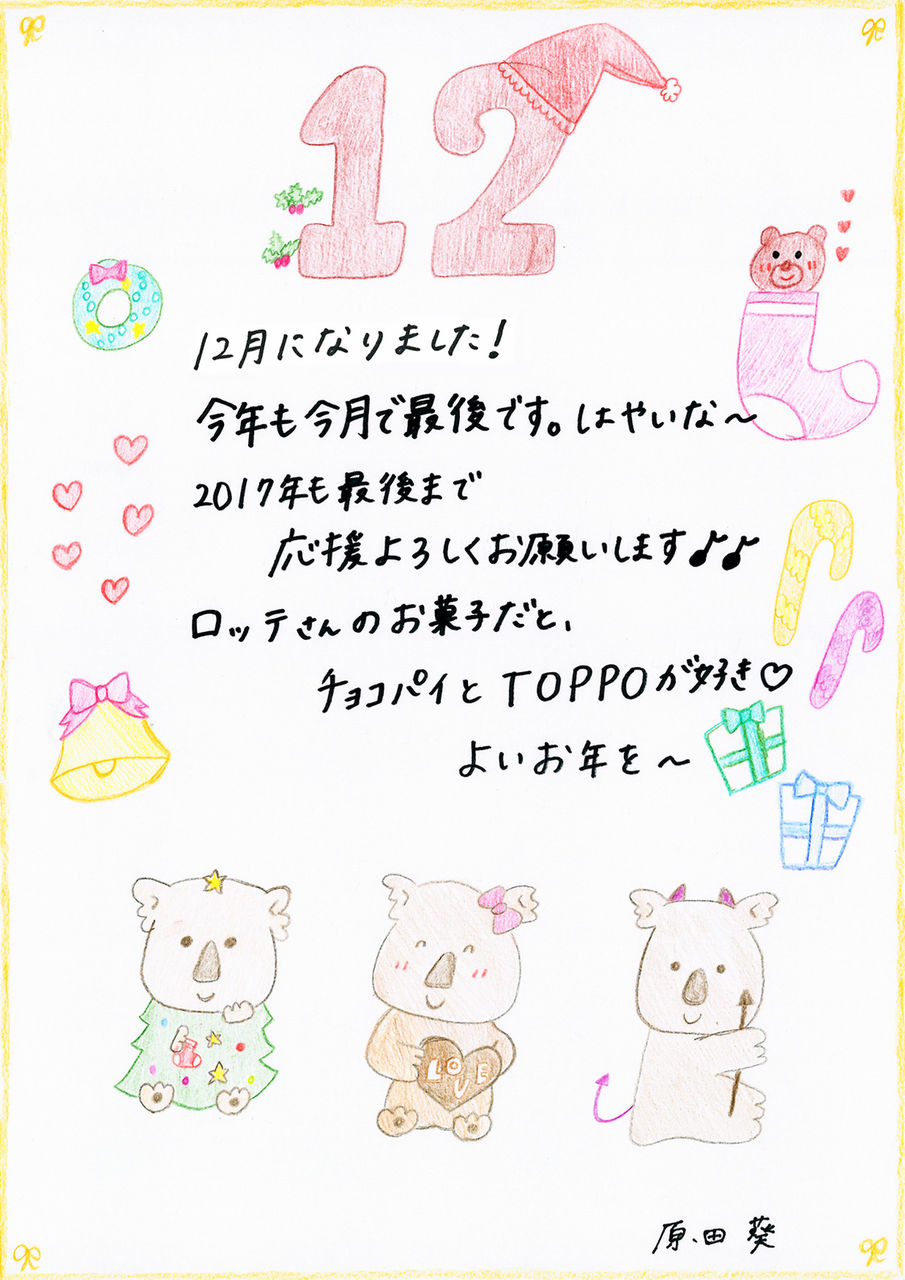 12
12月になりました!
今年も今月で最後です。はやいな〜
2017年も最後まで
応援よろしくお願いします♪♪
ロッテさんのお菓子だと、
チョコパイとTOPPOが好き♡
よいお年を〜
LOVE
原田葵